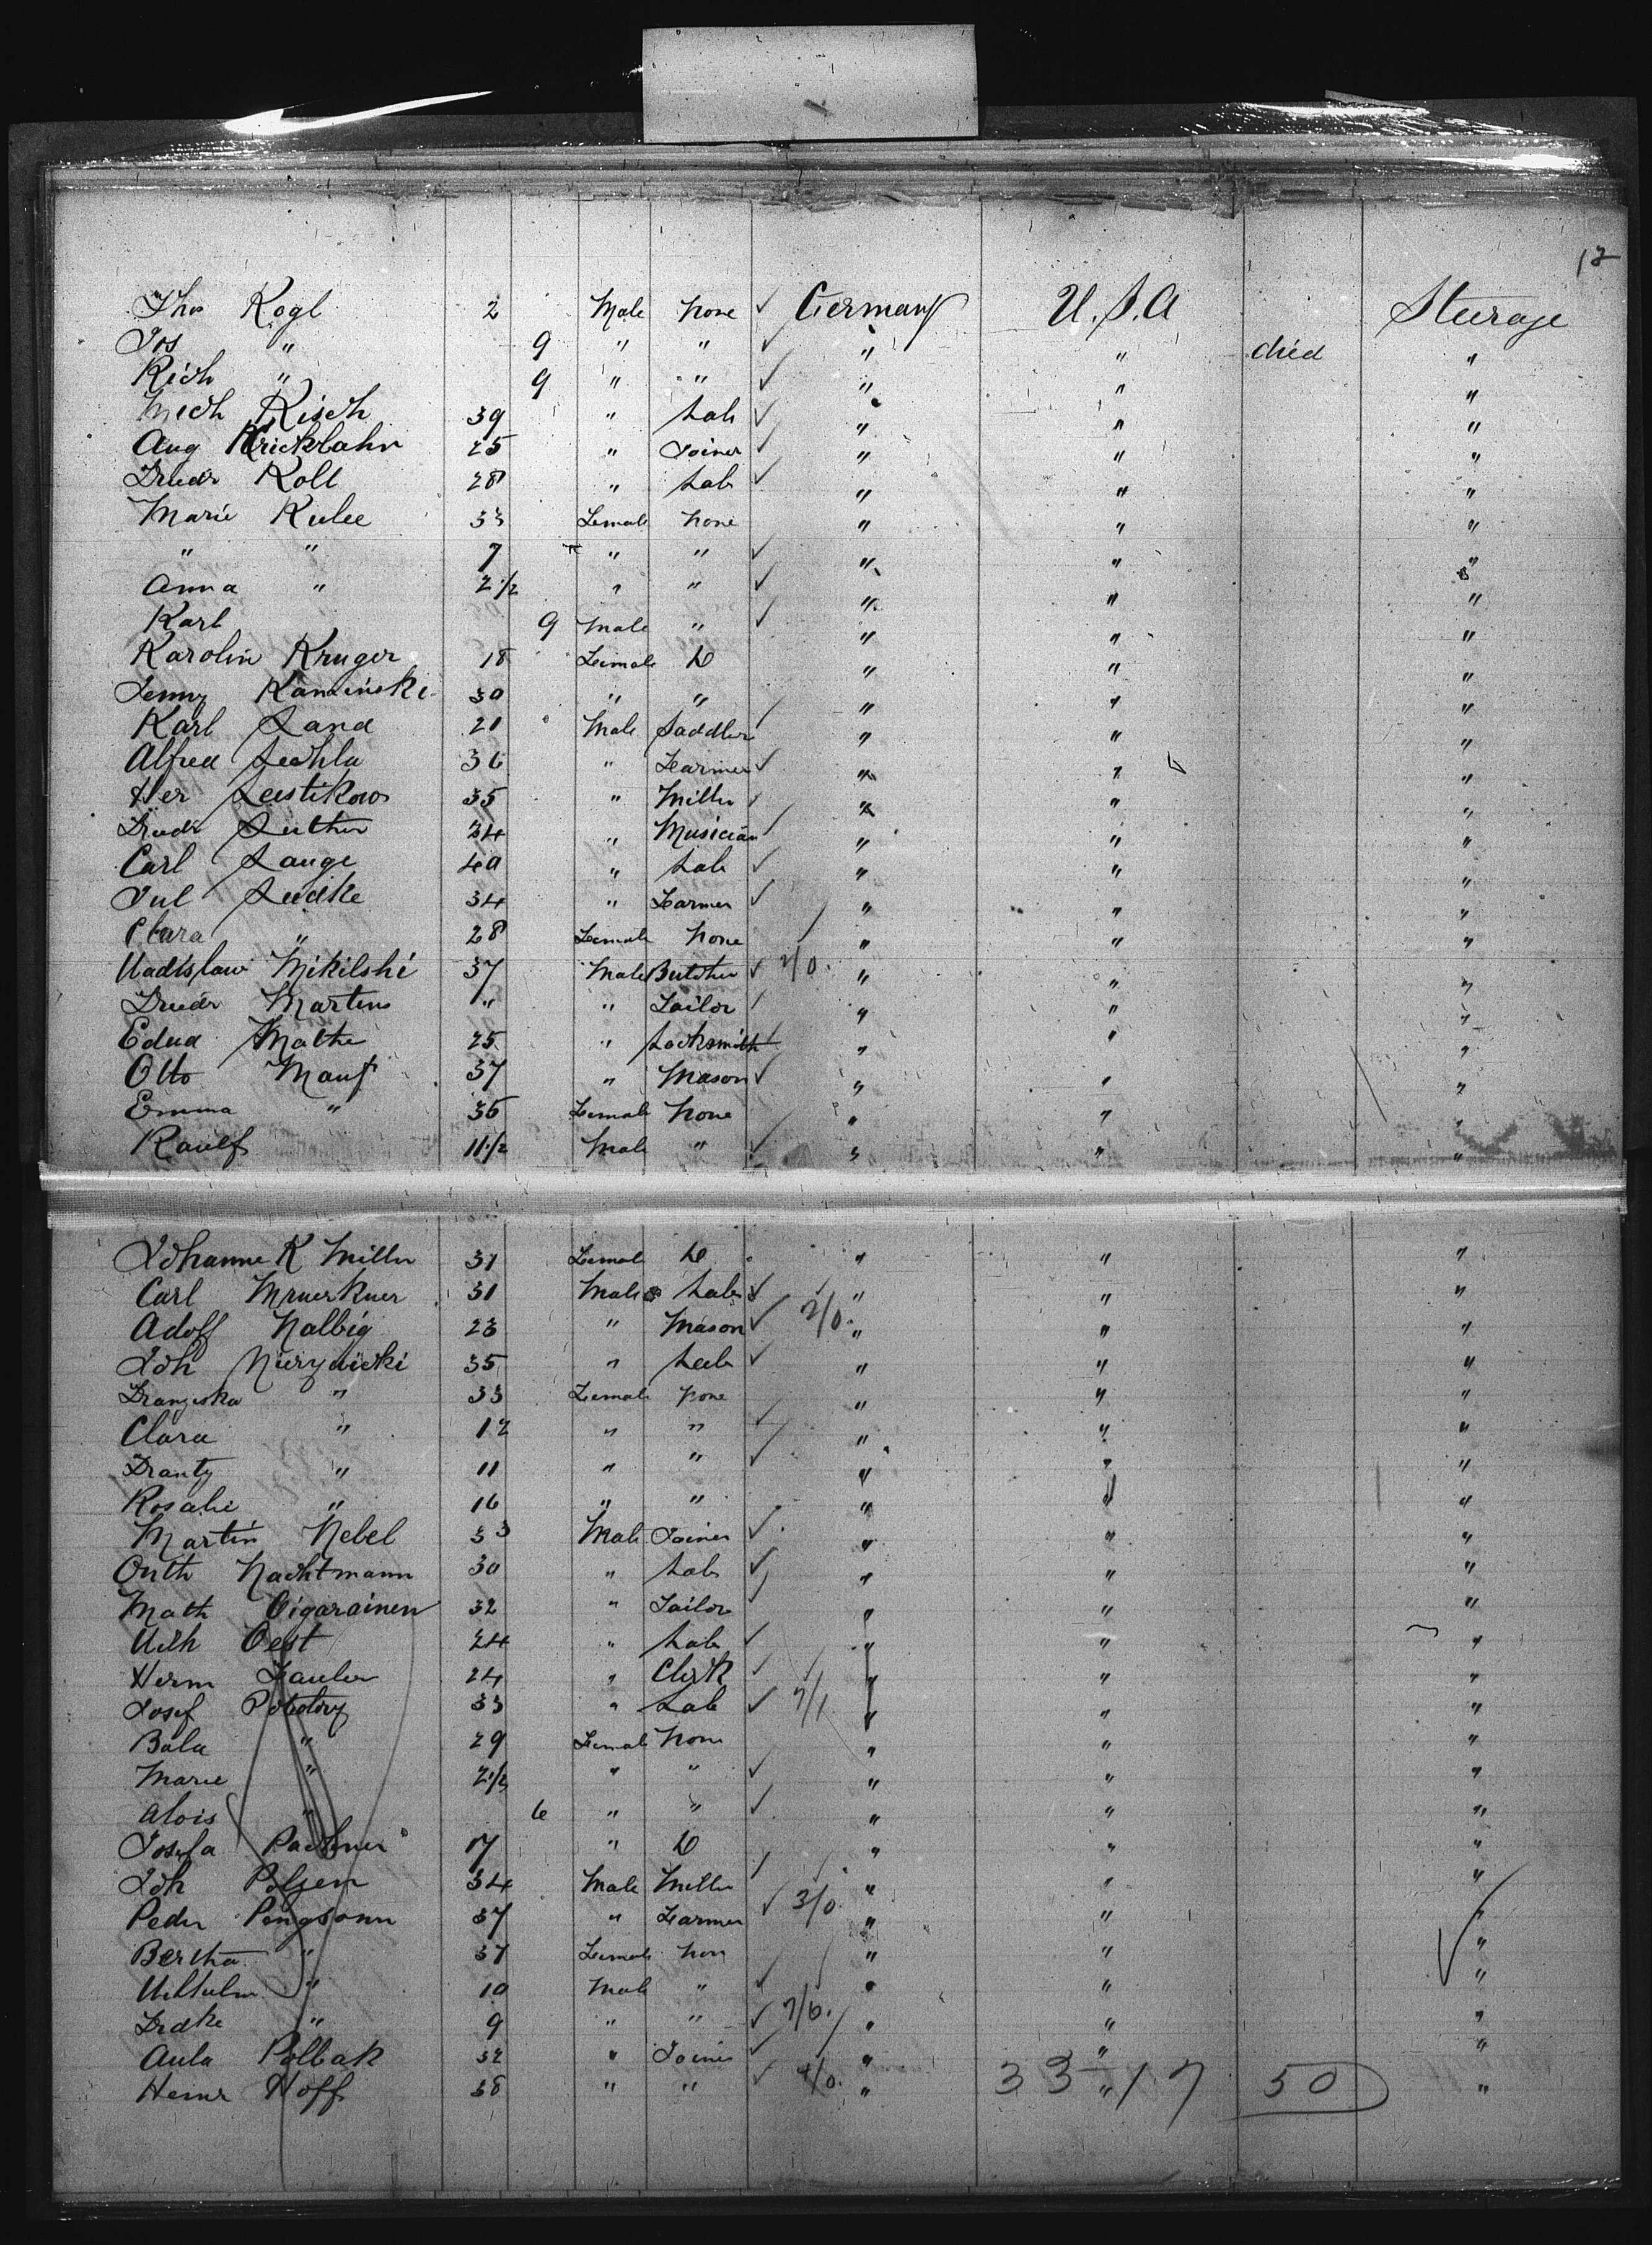 12
Thos Kogl 2 Male None ✓ Germany U.S.A Steerage
Jos " 9 " " ✓ " " died "
Rich " 9 " " ✓ " " "
Mich Kisch 39 " Lab ✓ " " "
Aug Krickbahn 25 " Joiner ✓ " " "
Friedr Koll 28 " Lab ✓ " " "
Marie Kulee 33 Female None " " "
" " 7 " " ✓ " " "
Anna " 2 1/2 " " ✓ " " "
Karl 9 Male " ✓ " " "
Karolin Kruger 18 Female Do " " "
Jenny Kaminski 30 " " " " "
Karl Land 21 Male Saddler ✓ " " "
Alfred Lechla 36 " Farmer ✓ " " "
Her Leistikow 35 " Miller ✓ " " "
Friedr Luther 34 " Musician ✓ " " "
Carl Lange 40 " Lab ✓ " " "
Jul Luedke 34 " Farmer ✓ " " "
Clara " 28 Female None " " "
Uladislaw Mikilshi 37 Male Butcher ✓ 2/0. " " "
Friedr Martens " " Tailor ✓ " " "
Edua Mathe 25 " Locksmith ✓ " " "
Otto Mauf 37 " Mason ✓ " " "
Emma " 36 Female None " " "
Raulf 11 1/2 Male " ✓ " " "
Johanne K Miller 31 Female Do " " "
Carl Mruerkuer 31 Male Lab ✓ " " "
Adolf Nalbig 23 " Mason ✓ 2/0. " " "
Joh Nierzwicki 35 " Lab ✓ " " "
Franziska " 33 Female None " " "
Clara " 12 " " ✓ " " "
Franty " 11 " " ✓ " " "
Rosalie " 16 " " " " "
Martin Nebel 33 Male Joiner ✓ " " "
Onth Nachtmann 30 " Lab ✓ " " "
Math Oigarainen 32 " Tailor ✓ " " "
Wilh Oest 24 " Lab ✓ " " "
Herm Fauler 24 " Clerk ✓ " " "
Josef Pobolny 33 " Lab ✓ 7/1 " " "
Bala " 29 Female None " " "
Marie " 2 1/2 " " ✓ " " "
Alois " 6 " " ✓ " " "
Josefa Pachner 17 " Do " " "
Joh Polzen 34 Male Miller ✓ " " "
Peder Pengsonn 37 " Farmer ✓ 3/0 " " "
Bertha " 37 Female Non " " "
Wilhelm " 10 Male " ✓ " " "
Fredke " 9 " " ✓ 7/6. " " "
Aula Pollak 32 " Joiner ✓ " " "
Heinr Hoff 38 " " ✓ 4/0. " " "
33 17 50